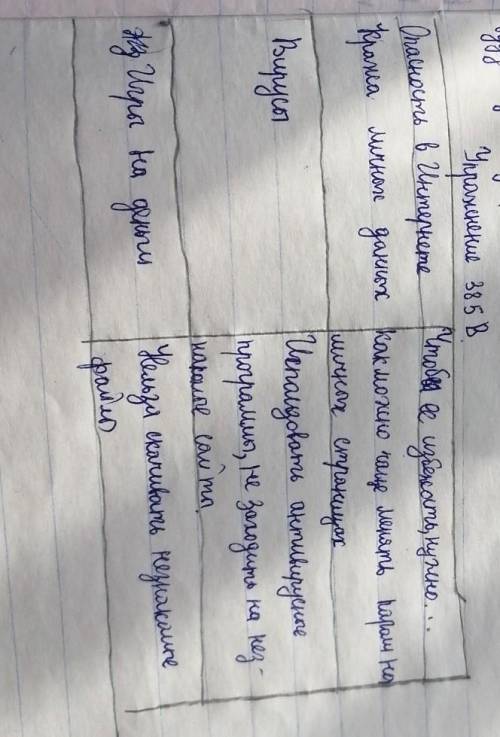 Упражнение 385 В
Опасность в Интернете
Чтобы ее избежать, нужно...
Кража личных данных
Как можно чаще менять пароли на
личных страницах
Вирусы
Использовать антивирусные
программы, не заходить на нез-
накомые сайты
Игры на деньги
Нельзя скачивать незнакомые
файлы